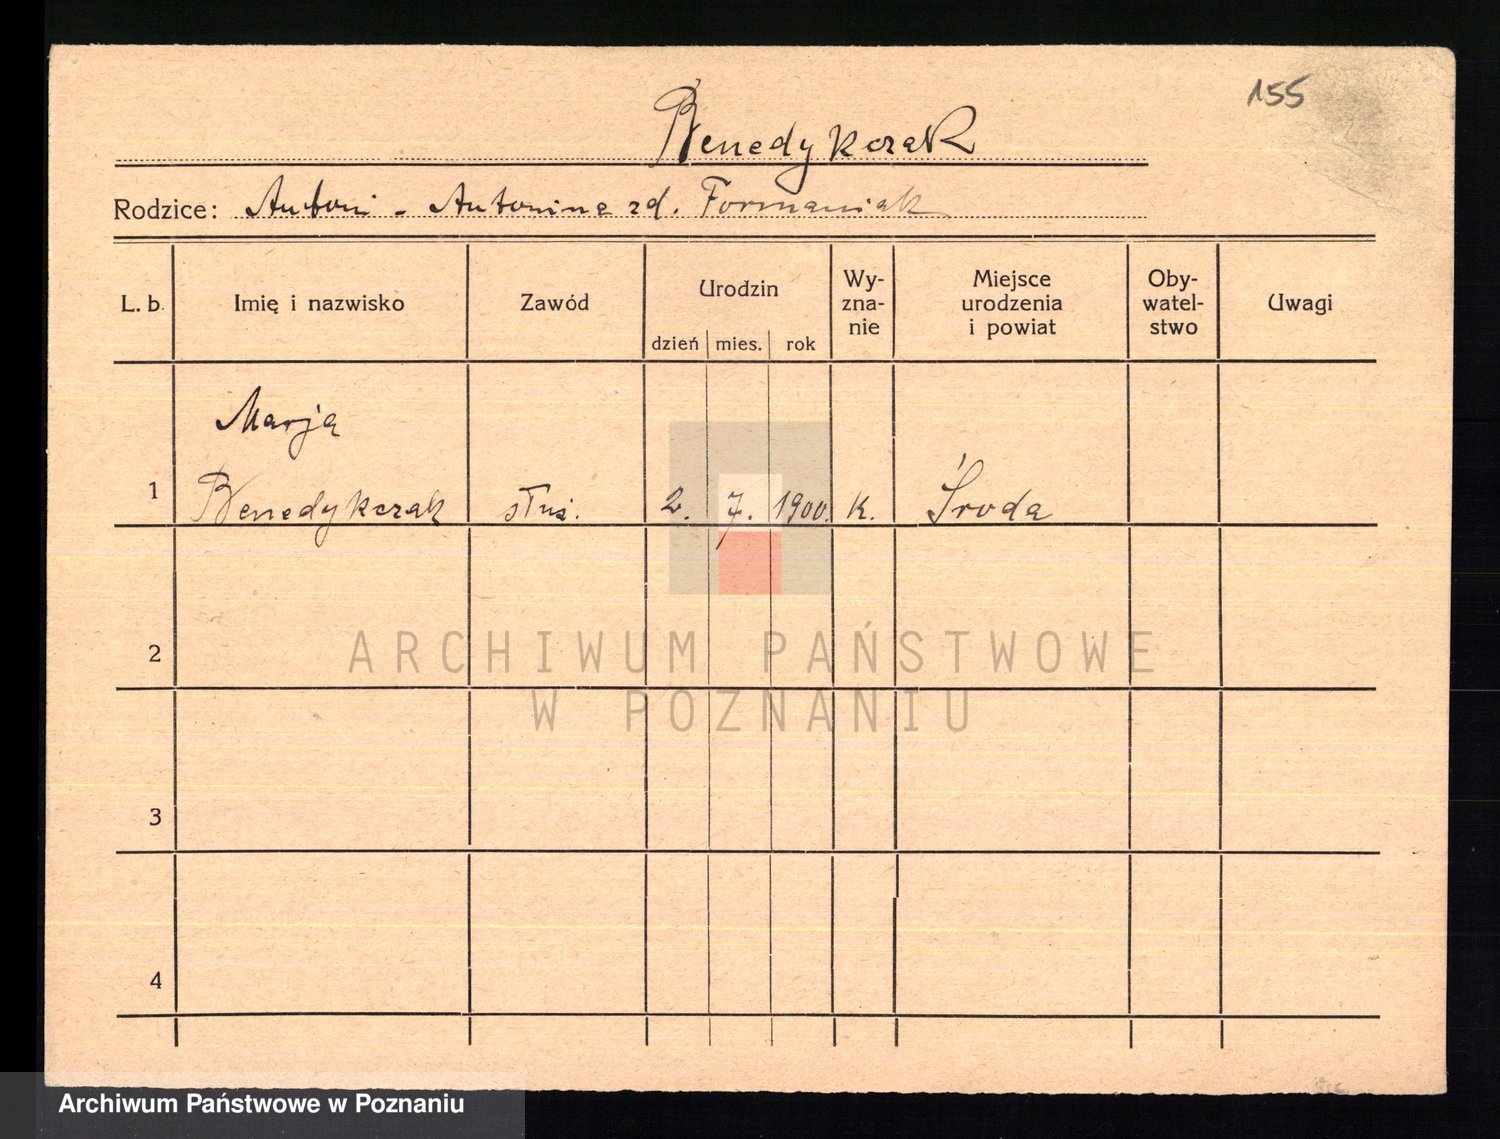 155
Benedykczak
Rodzice: Antoni - Antonina zd. Formaniak
L. b. Imię i nazwisko Zawód Urodzin dzień mies. rok Wy- zna- nie Miejsce urodzenia i powiat Oby- watel- stwo Uwagi
Marja
1 Benedykczak służ. 2. 7. 1900. k. Środa
2
ARCHIWUM PAŃSTWOWE
W POZNANIU
3
4
Archiwum Państwowe w Poznaniu